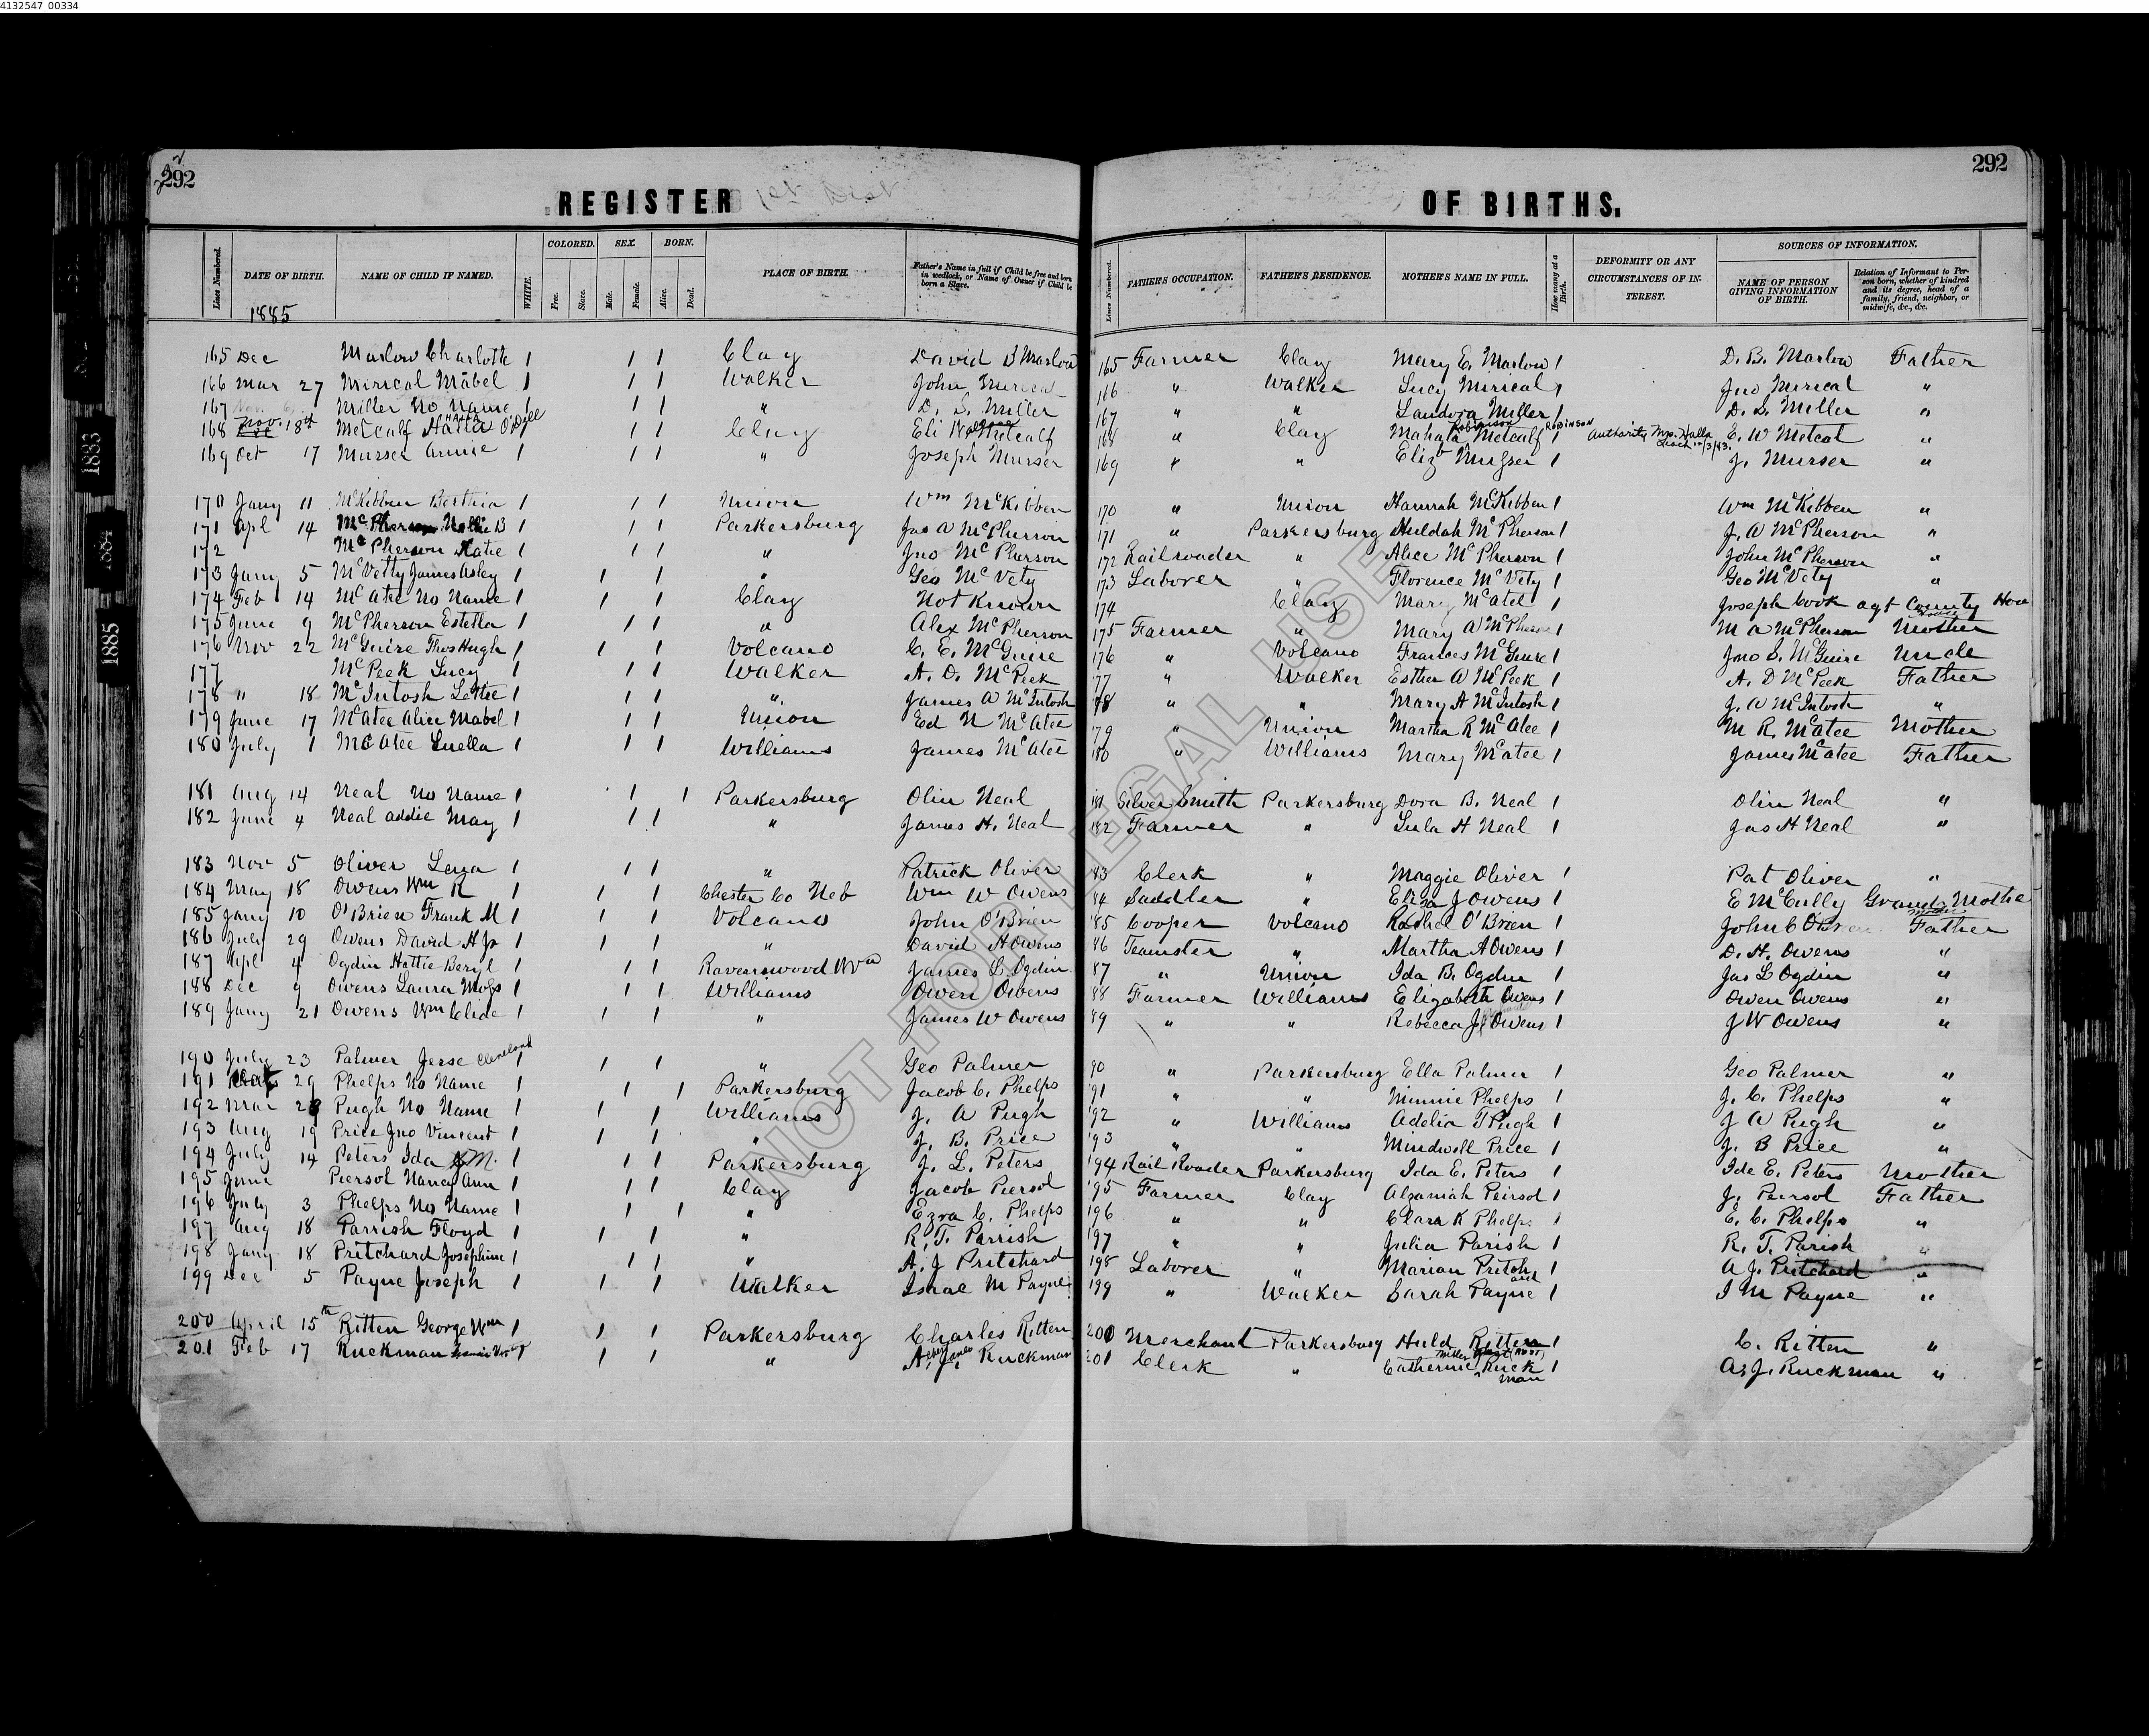 4132547_00334
292
292
REGISTER 1st Dist
OF BIRTHS.
Lines Numbered. DATE OF BIRTH. NAME OF CHILD IF NAMED. WHITE. COLORED. Free. Slave. SEX. Male. Female. BORN. Alive. Dead. PLACE OF BIRTH. Father's Name in full if Child be free and born in wedlock, or Name of Owner if Child be born a Slave.
Lines Numbered. FATHER'S OCCUPATION. FATHER'S RESIDENCE. MOTHER'S NAME IN FULL. How many at a Birth. DEFORMITY OR ANY CIRCUMSTANCES OF INTEREST. SOURCES OF INFORMATION. NAME OF PERSON GIVING INFORMATION OF BIRTH. Relation of Informant to Person born, whether of kindred and its degree, head of a family, friend, neighbor, or midwife, &c., &c.
1885
165 Dec Marlow Charloth 1 1 1 Clay David B Marlow 165 Farmer Clay Mary E. Marlow 1 D. B. Marlow Father
166 Mar 27 Mirical Mabel 1 1 1 Walker John Mirical 166 " Walker Lucy Mirical 1 Jno Mirical "
167 Miller No Name 1 1 1 " D. S. Miller 167 " " Landora Miller 1 D. S. Miller "
168 Nov. 18th Metcalf Halla O'Dell 1 1 1 Clay Eli Metcalf 168 " Clay Mahala Robinson Metcalf 1 ROBINSON Authority Mrs. Halla Leach 12/3/43. E. W Metcal "
169 Oct 17 Murser Annie 1 1 1 " Joseph Murser 169 " " Eliz Murser 1 J. Murser "
170 Jany 11 McKibben Berthia 1 1 1 Union Wm McKibben 170 " Union Hannah McKibben 1 Wm McKibben "
171 Apl 14 McPherson Nollie B 1 1 1 Parkersburg Jas A McPherson 171 " Parkersburg Huldah McPherson 1 J. A McPherson "
172 McPherson Katie 1 1 1 " Jno McPherson 172 Railroader " Alice McPherson 1 John McPherson "
173 Jany 5 McVetty James Asley 1 1 1 " Geo McVety 173 Laborer " Florence McVety 1 Geo McVety "
174 Feb 14 McAtee No Name 1 1 1 Clay Not Known 174 Clay Mary McAtee 1 Joseph Cook agt County Hou
175 June 9 McPherson Estella 1 1 1 " Alex McPherson 175 Farmer " Mary A McPherson 1 M A McPherson Mother
176 Nov 22 McGuire Thos Hugh 1 1 1 Volcano C. E. McGuire 176 " Volcano Frances McGuire 1 Jno S. McGuire Uncle
177 McPeek Lucy 1 1 1 Walker A. D. McPeek 77 " Walker Esther A McPeek 1 A. D McPeek Father
178 " 18 McIntosh Lettie 1 1 1 " James A McIntosh 78 " " Mary A McIntosh 1 J. A McIntosh "
179 June 17 McAtee Alice Mabel 1 1 1 Union Ed N McAtee 179 " Union Martha R McAtee 1 M R. McAtee Mother
180 July 1 McAtee Luella 1 1 1 Williams James McAtee 180 " Williams Mary McAtee 1 James McAtee Father
181 Aug 14 Neal No Name 1 1 1 Parkersburg Olin Neal 181 Silver Smith Parkersburg Dora B. Neal 1 Olin Neal "
182 June 4 Neal Addie May 1 1 1 " James H. Neal 182 Farmer " Lula H Neal 1 Jas H Neal "
183 Nov 5 Oliver Lena 1 1 1 " Patrick Oliver 83 Clerk " Maggie Oliver 1 Pat Oliver "
184 May 18 Owens Wm R 1 1 1 Chester Co Neb Wm W Owens 84 Saddler " Eliza J Owens 1 E McCully Grand Mothe
185 Jany 10 O'Brien Frank M 1 1 1 Volcano John O'Brien 85 Cooper Volcano Rachel O'Brien 1 John C OBrien Father
186 July 29 Owens David H Jr 1 1 1 " David H Owens 86 Teamster " Martha A Owens 1 D. H. Owens "
187 Apl 4 Ogdin Hattie Beryl 1 1 1 Ravenswood WVa James L Ogdin 87 " Union Ida B. Ogdin 1 Jas L Ogdin "
188 Dec 9 Owens Laura 1 1 1 Williams Owen Owens 88 Farmer Williams Elizabeth Owens 1 Owen Owens "
189 Jany 21 Owens Wm Clide 1 1 1 " James W Owens 89 " " Rebecca J Owens 1 J W Owens "
190 July 23 Palmer Jerse Cleveland 1 1 1 " Geo Palmer 90 " Parkersburg Ella Palmer 1 Geo Palmer "
191 29 Phelps No Name 1 1 1 Parkersburg Jacob C. Phelps 91 " " Minnie Phelps 1 J. C. Phelps "
192 Mar 28 Pugh No Name 1 1 1 Williams J. A Pugh 192 " Williams Adelia T Pugh 1 J A Pugh "
193 Aug 19 Price Jno Vincent 1 1 1 " J. B. Price 193 " " Mindwell Price 1 J. B Price "
194 July 14 Peters Ida M. 1 1 1 Parkersburg J. L. Peters 194 Rail Roader Parkersburg Ida E. Peters 1 Ida E. Peters Mother
195 June Piersol Nancy Ann 1 1 1 Clay Jacob Piersol 195 Farmer Clay Alzaniah Peirsol 1 J. Peirsol Father
196 July 3 Phelps No Name 1 1 1 " Ezra C. Phelps 196 " " Clara K Phelps 1 E. C. Phelps "
197 Aug 18 Parrish Floyd 1 1 1 " R. T. Parrish 197 " " Julia Parish 1 R. T. Parish "
198 Jany 18 Pritchard Josephine 1 1 1 " A. J Pritchard 198 Laborer " Marian Pritchard 1 A J. Pritchard "
199 Dec 5 Payne Joseph 1 1 1 Walker Isaac M Payne 199 " Walker Sarah Payne 1 I M Payne "
200 April 15th Ritten George Wm 1 1 1 Parkersburg Charles Ritten 200 Merchant Parkersburg Huld Ritten 1 C. Ritten "
201 Feb 17 Ruckman 1 1 A. J. Ruckman 201 Clerk " Catherine Ruckman 1 A. J. Ruckman "
1833
1884
1885
NOT FOR LEGAL USE